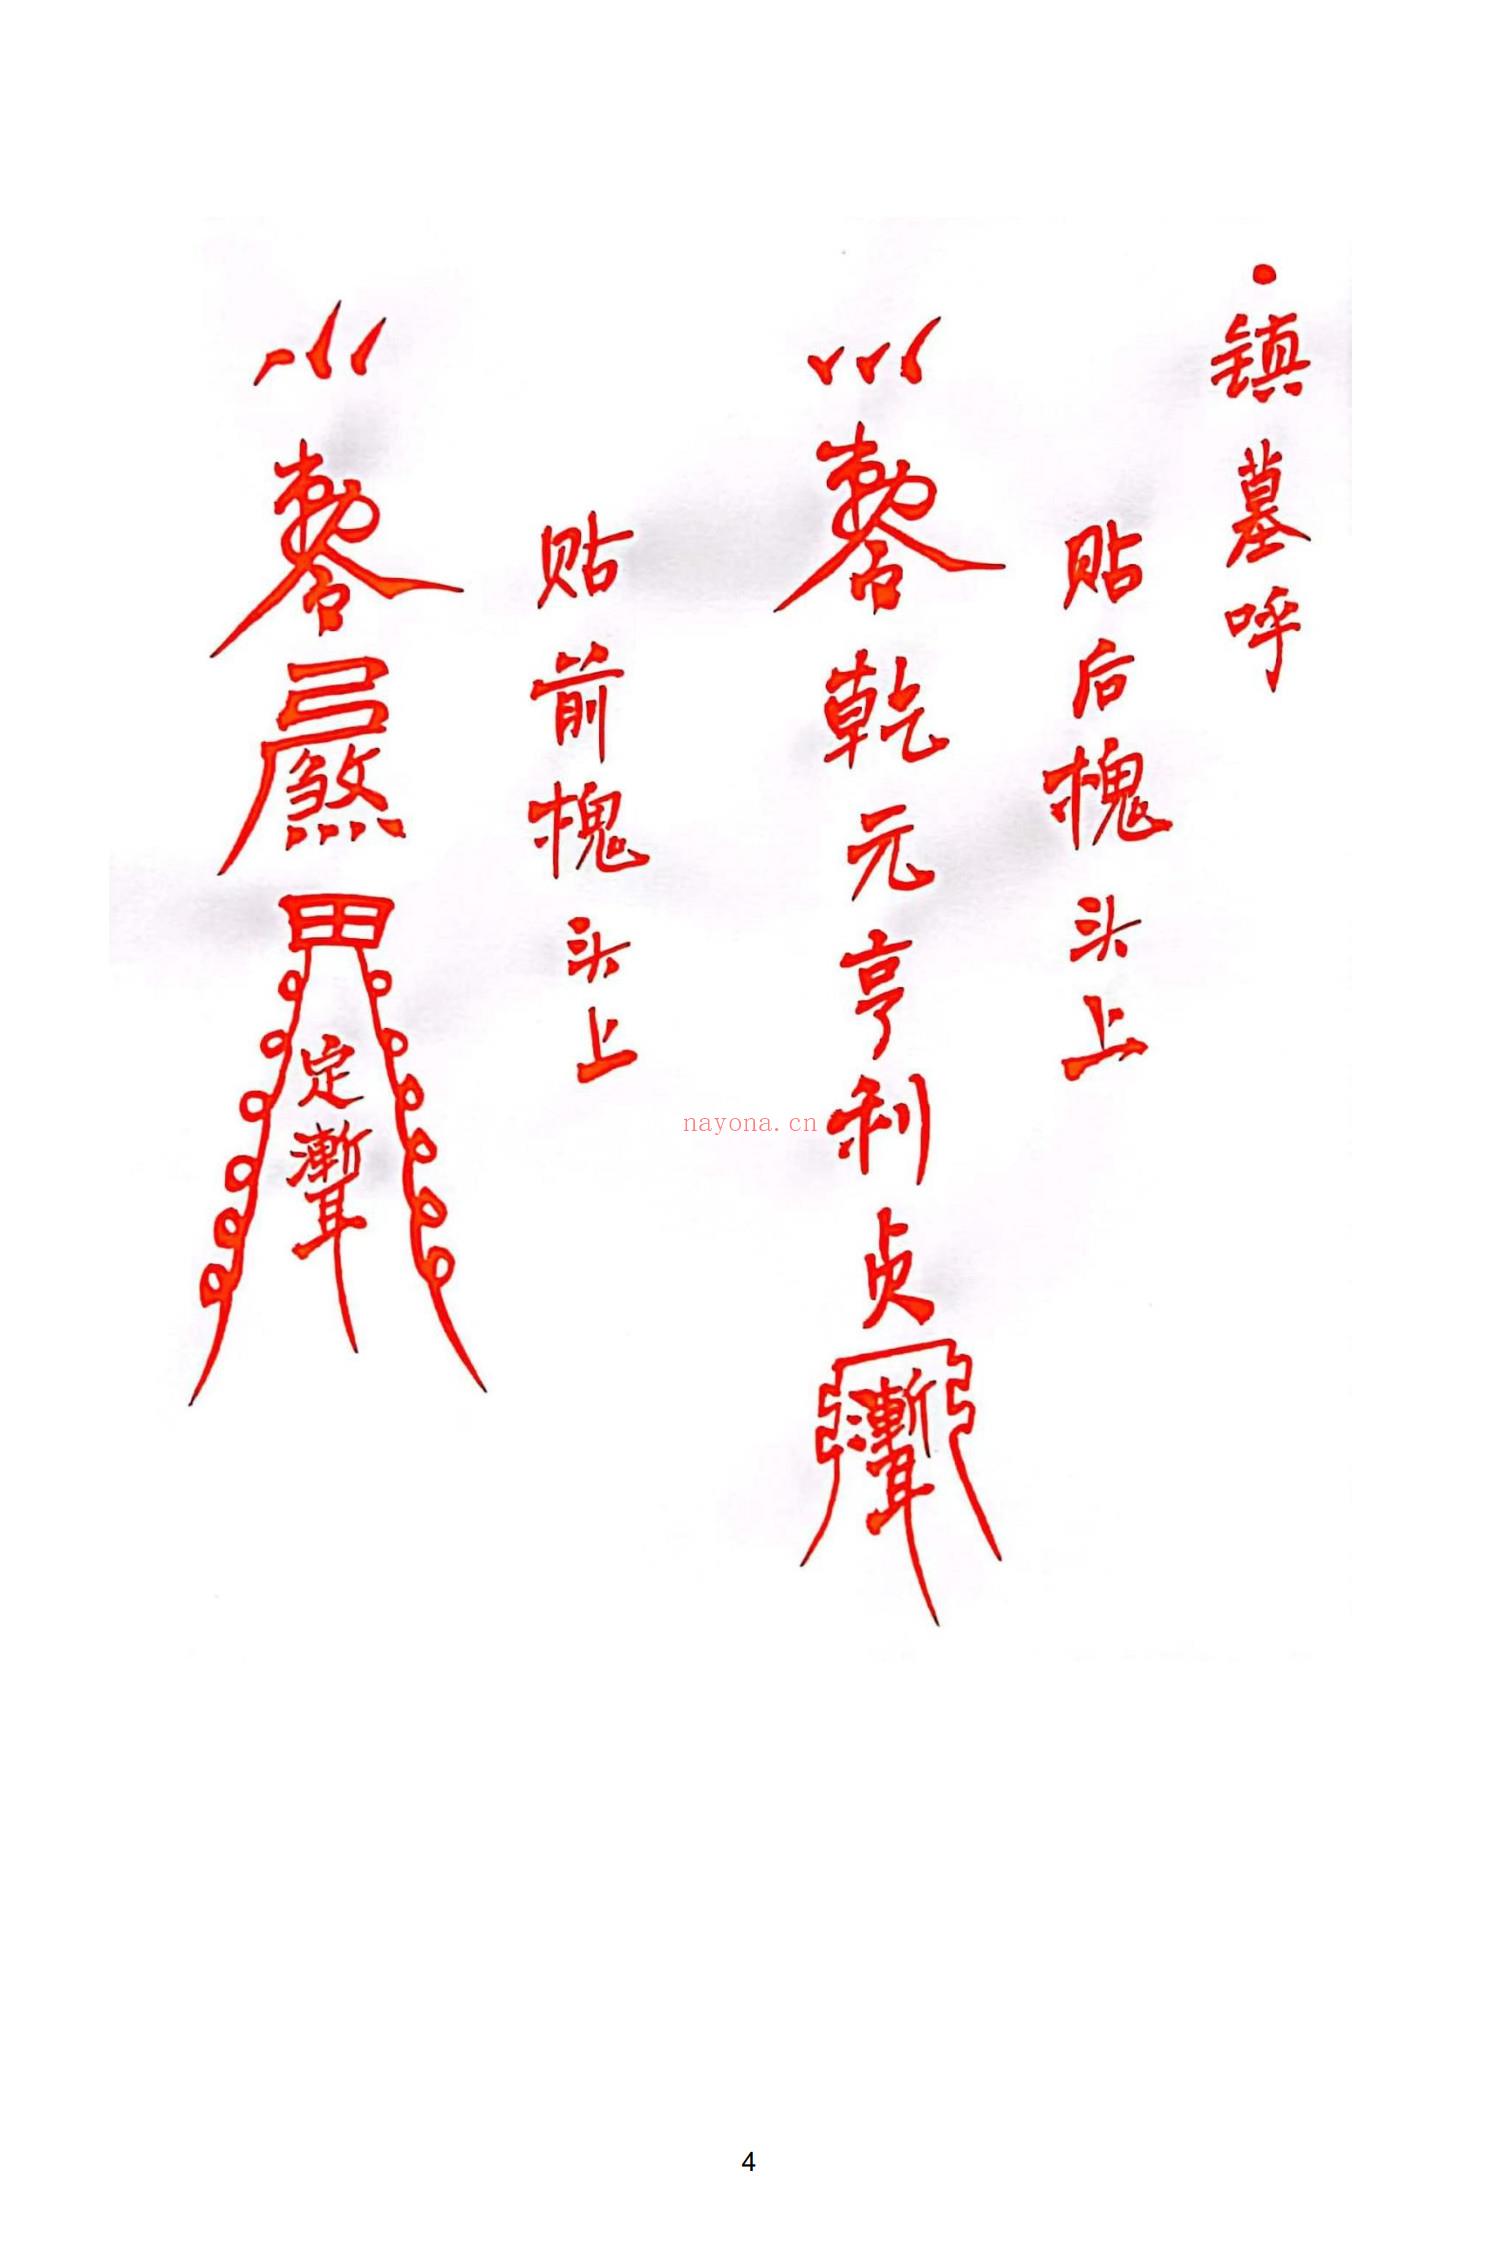 镇墓呼
贴后槐头上
敕令乾元亨利贞
魙
贴前槐头上
敕令
煞
定
魙
nayona.cn
4